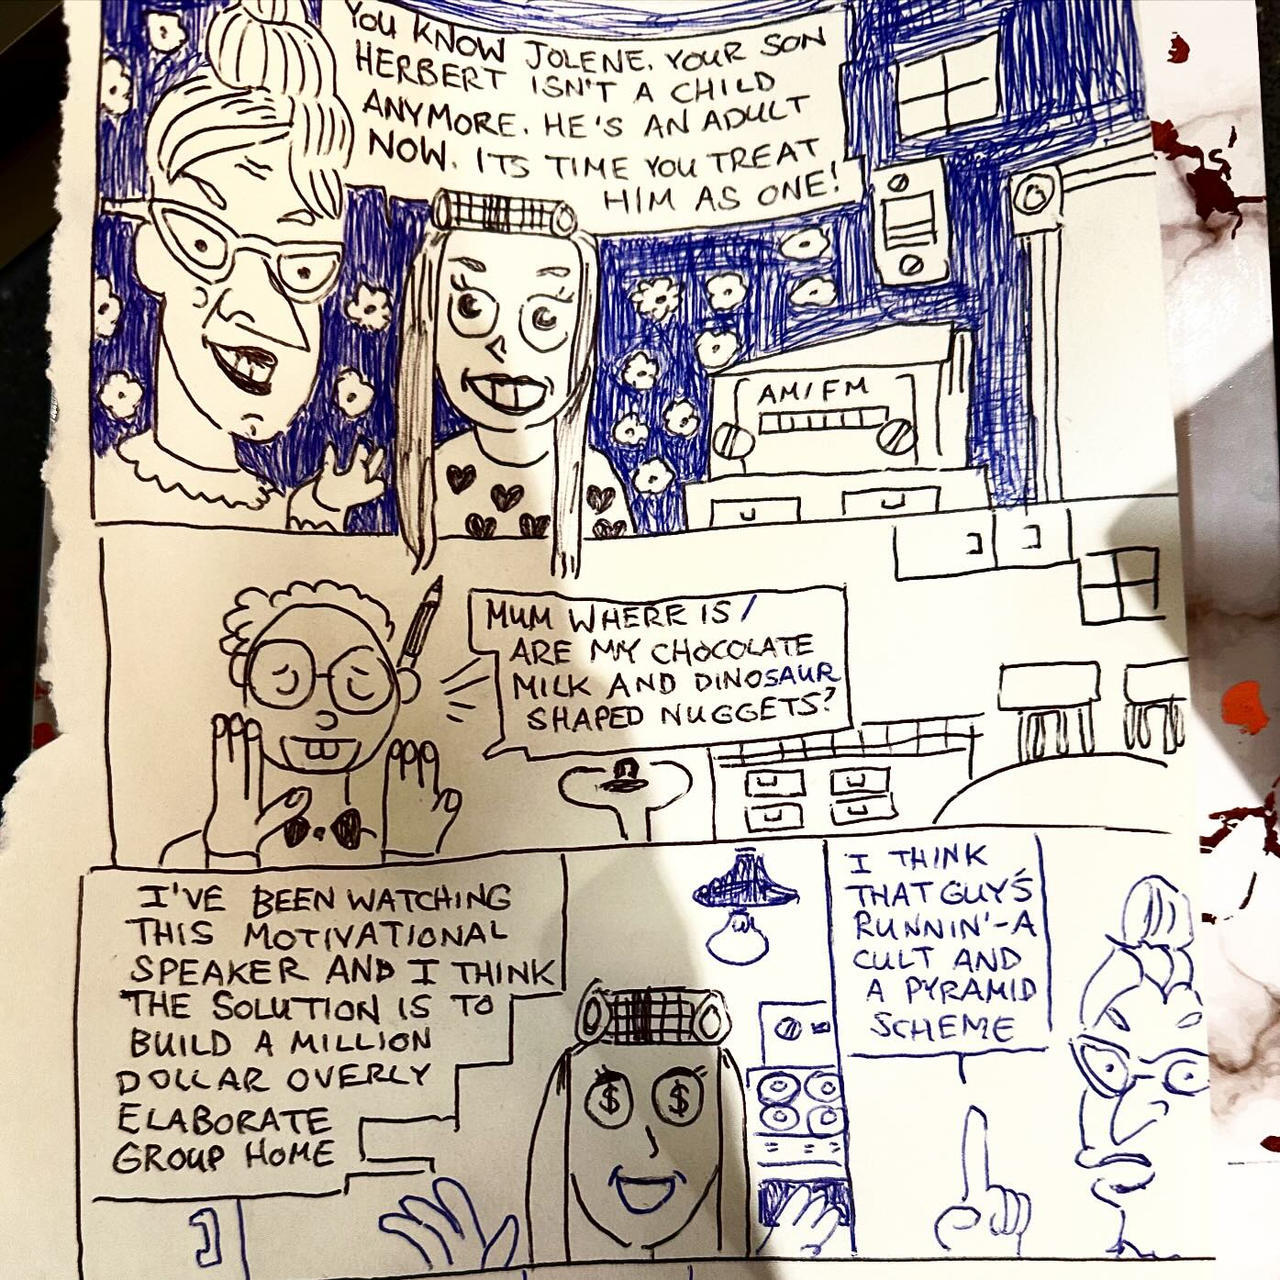 YOU KNOW JOLENE. YOUR SON
HERBERT ISN'T A CHILD
ANYMORE. HE'S AN ADULT
NOW. ITS TIME YOU TREAT
HIM AS ONE!
AM/FM
MUM WHERE IS/
ARE MY CHOCOLATE
MILK AND DINOSAUR
SHAPED NUGGETS?
I'VE BEEN WATCHING
THIS MOTIVATIONAL
SPEAKER AND I THINK
THE SOLUTION IS TO
BUILD A MILLION
DOLLAR OVERLY
ELABORATE
GROUP HOME
$ $
I THINK
THAT GUY'S
RUNNIN'-A
CULT AND
A PYRAMID
SCHEME